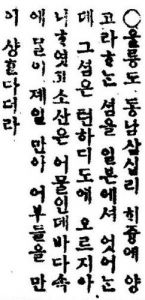 ○울릉도 동남삼십리 ᄒᆡ즁에 양
고라ᄒᆞᄂᆞᆫ 셤을 일본에셔 엇어ᄂᆞᆫ
대 그셤은 텬하디도에 오르지아
니ᄒᆞ엿고 소산은 어물인데 바다속
에 물이 제일 만아 어부들을 만
이 상ᄒᆞᆫ다더라